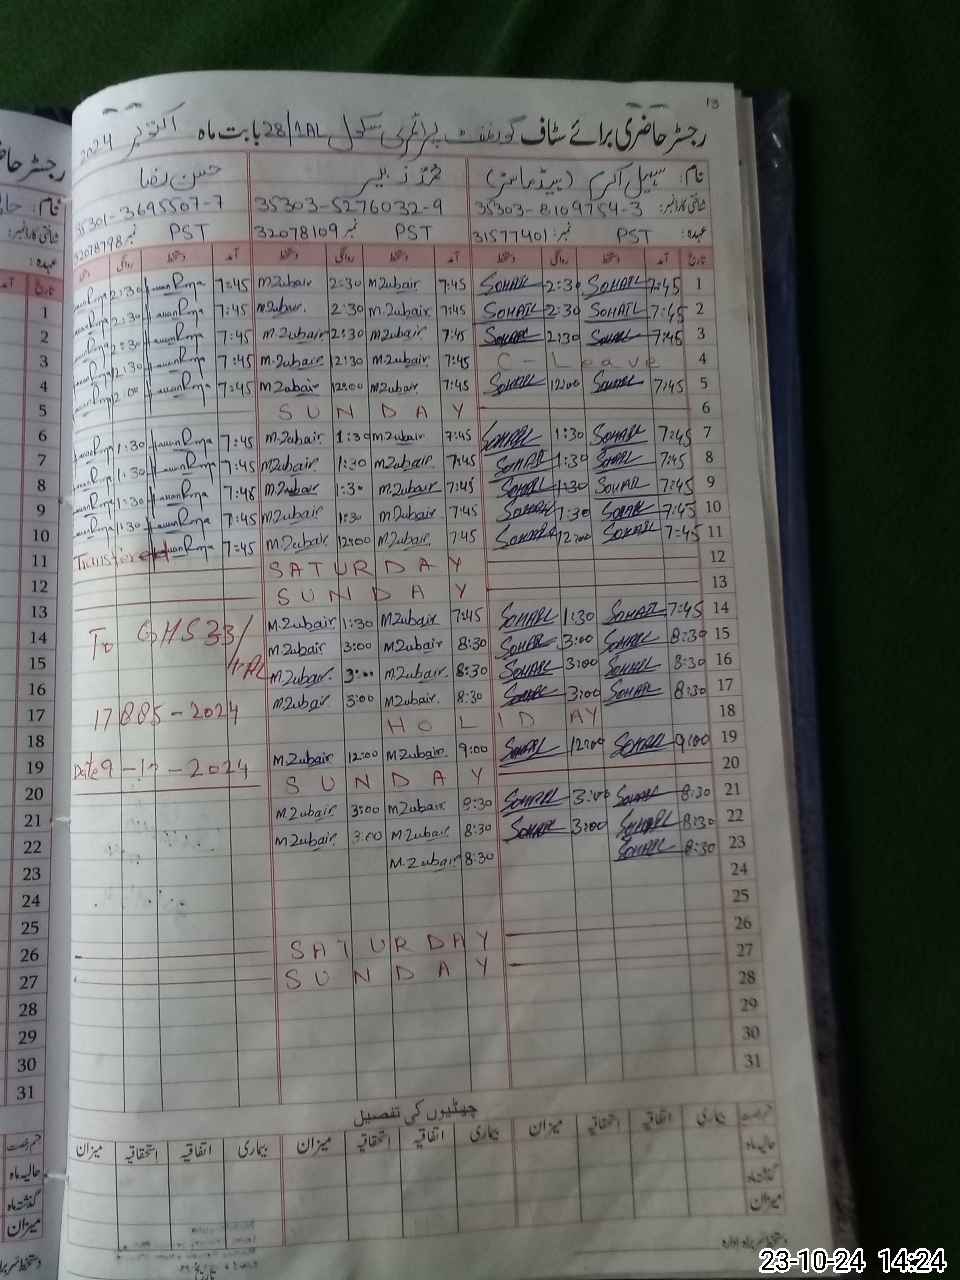 13
رجسٹر حاضری برائے سٹاف گورنمنٹ پرائمری سکول 28/1AL بابت ماہ اکتوبر 2024
نام: سہیل اکرم (ہیڈ ماسٹر) محمد زبیر حسن رضا
شناختی کارڈ نمبر: 35303-8109754-3 35303-5276032-9 35301-3695507-7
عہدہ: PST نمبر: 31577401 PST نمبر 32078109 PST نمبر 32078798
تاریخ آمد دستخط روانگی دستخط آمد دستخط روانگی دستخط آمد دستخط روانگی دستخط
1 7:45 SOHAIL 2:30 SOHAIL 7:45 M.Zubair 2:30 M.Zubair 7:45 HassanRaza 2:30 HassanRaza
2 7:45 SOHAIL 2:30 SOHAIL 7:45 M.Zubair 2:30 M.Zubair 7:45 HassanRaza 2:30 HassanRaza
3 7:45 SOHAIL 2:30 SOHAIL 7:45 M.Zubair 2:30 M.Zubair 7:45 HassanRaza 2:30 HassanRaza
4 C - Leave 7:45 M.Zubair 12:30 M.Zubair 7:45 HassanRaza HassanRaza
5 7:45 SOHAIL 12:00 SOHAIL 7:45 M.Zubair 12:00 M.Zubair 7:45 HassanRaza HassanRaza
6 SUNDAY
7 7:45 SOHAIL 1:30 SOHAIL 7:45 M.Zubair 1:30 M.Zubair 7:45 HassanRaza 1:30 HassanRaza
8 7:45 SOHAIL 1:30 SOHAIL 7:45 M.Zubair 1:30 M.Zubair 7:45 HassanRaza 1:30 HassanRaza
9 7:45 SOHAIL 1:30 SOHAIL 7:45 M.Zubair 1:30 M.Zubair 7:45 HassanRaza 1:30 HassanRaza
10 7:45 SOHAIL 1:30 SOHAIL 7:45 M.Zubair 1:30 M.Zubair 7:45 HassanRaza 1:30 HassanRaza
11 7:45 SOHAIL 12:00 SOHAIL 7:45 M.Zubair 12:00 M.Zubair 7:45 HassanRaza
12 SATURDAY
13 SUNDAY
14 7:45 SOHAIL 1:30 SOHAIL 7:45 M.Zubair 1:30 M.Zubair
15 8:30 SOHAIL 3:00 SOHAIL 8:30 M.Zubair 3:00 M.Zubair
16 8:30 SOHAIL 3:00 SOHAIL 8:30 M.Zubair 3:00 M.Zubair
17 8:30 SOHAIL 3:00 SOHAIL 8:30 M.Zubair 3:00 M.Zubair
18 HOLIDAY
19 9:00 SOHAIL 12:00 SOHAIL 9:00 M.Zubair 12:00 M.Zubair
20 SUNDAY
21 8:30 SOHAIL 3:00 SOHAIL 8:30 M.Zubair 3:00 M.Zubair
22 8:30 SOHAIL 3:00 SOHAIL 8:30 M.Zubair 3:00 M.Zubair
23 8:30 SOHAIL 8:30 M.Zubair
24
25
26 SATURDAY
27 SUNDAY
28
29
30
31
To GHS 33/
17885-2024
2024
چھٹیوں کی تفصیل
قسم رخصت بیماری اتفاقیہ استحقاقیہ میزان بیماری اتفاقیہ استحقاقیہ میزان بیماری اتفاقیہ استحقاقیہ میزان
حالیہ ماہ
گذشتہ ماہ
میزان
دستخط سربراہ ادارہ
تاریخ
رجسٹر
نام:
شناختی کارڈ نمبر:
عہدہ:
تاریخ
1
2
3
4
5
6
7
8
9
10
11
12
13
14
15
16
17
18
19
20
21
22
23
24
25
26
27
28
29
30
31
قسم رخصت
حالیہ ماہ
گذشتہ ماہ
میزان
23-10-24 14:24